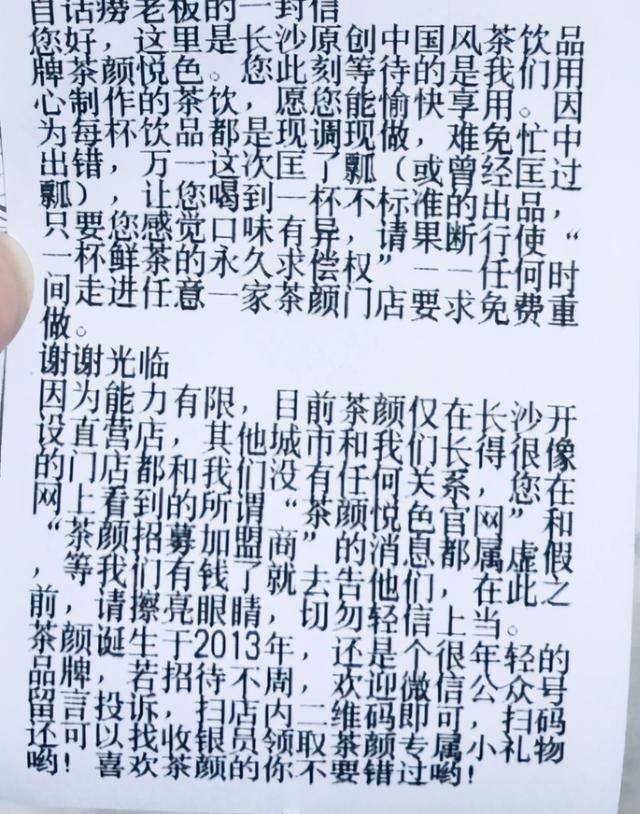 自话痨老板的一封信
您好，这里是长沙原创中国风茶饮品
牌茶颜悦色。您此刻等待的是我们用
心制作的茶饮，愿您能愉快享用。因
为每杯饮品都是现调现做，难免忙中
出错，万一这次匡了瓢（或曾经匡过
瓢），让您喝到一杯不标准的出品，
只要您感觉口味有异，请果断行使“
一杯鲜茶的永久求偿权”一一任何时
间走进任意一家茶颜门店要求免费重
做。
谢谢光临
因为能力有限，目前茶颜仅在长沙开
设直营店，其他城市和我们长得很像
的门店都和我们没有任何关系，您在
网上看到的所谓“茶颜悦色官网”和
“茶颜招募加盟商”的消息都属虚假
，等我们有钱了就去告他们，在此之
前，请擦亮眼睛，切勿轻信上当。
茶颜诞生于2013年，还是个很年轻的
品牌，若招待不周，欢迎微信公众号
留言投诉，扫店内二维码即可，扫码
还可以找收银员领取茶颜专属小礼物
哟！喜欢茶颜的你不要错过哟！